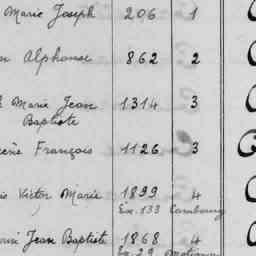 Marie Joseph 206 1
Alphonse 862 2
Marie Jean 1314 3
Baptiste
François 1126 3
Victor Marie 1899 4
Ex. 133 Combourg
Jean Baptiste 1868 4
Ex. 29